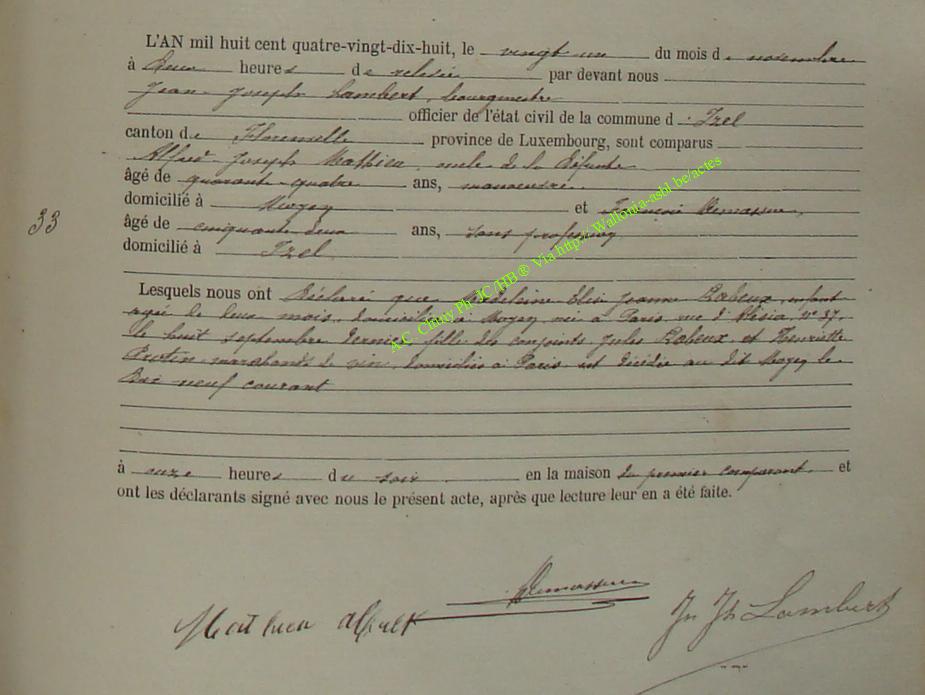 L'AN mil huit cent quatre-vingt-dix-huit, le vingt un du mois de novembre
à deux heures de relevée par devant nous
Jean Joseph Lambert, bourgmestre
officier de l'état civil de la commune d Izel
canton de Florenville province de Luxembourg, sont comparus
Alfred Joseph Mathieu, oncle de la défunte
âgé de quarante quatre ans, manoeuvre
domicilié à Moyen et François Demasseure,
33
âgé de cinquante deux ans, sans profession
domicilié à Izel
Lesquels nous ont déclaré que Madeleine Elise Jeanne Labeux, enfant
agée de deux mois, domiciliée à Moyen, née à Paris rue d'Alésia, n° 37,
le huit septembre dernier, fille des conjoints Jules Labeux et Henriette
marchands de vin, domiciliés à Paris est décédée au dit Moyen le
Dix neuf courant
à onze heures du soir en la maison du premier comparant, et
ont les déclarants signé avec nous le présent acte, après que lecture leur en a été faite.
Mathieu Alfred Jn Jh Lambert
A.C. Chiny Ph JC/HB ® Via http://Wallonia-asbl.be/actes